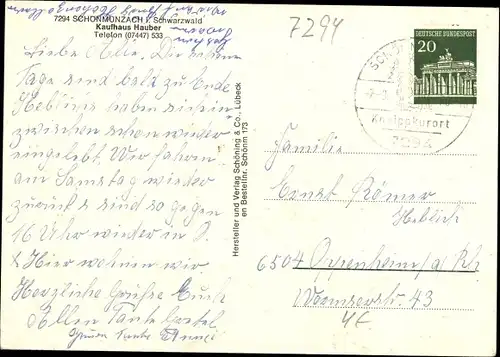 7294 SCHÖNMÜNZACH i. Schwarzwald
Kaufhaus Hauber
Telefon (07447) 533
7294
Liebe Alle. Die schönen
Tage sind bald zu Ende
haben sie sich in
zwischen schon wieder
eingelebt. Wir fahren
am Samstag wieder
zurück & sind so gegen
16 Uhr wieder in
& Hier wohnen wir
Herzliche Grüsse Euch
Allen Tante
Tante Anneri
Hersteller und Verlag Schöning & Co., Lübeck
en Bestellnr. Schönm 173
DEUTSCHE BUNDESPOST
20
Kneippkurort
7294
Familie
Ernst Römer
Heblich
6504 Oppenheim/a/Rh
Wormserstr. 43